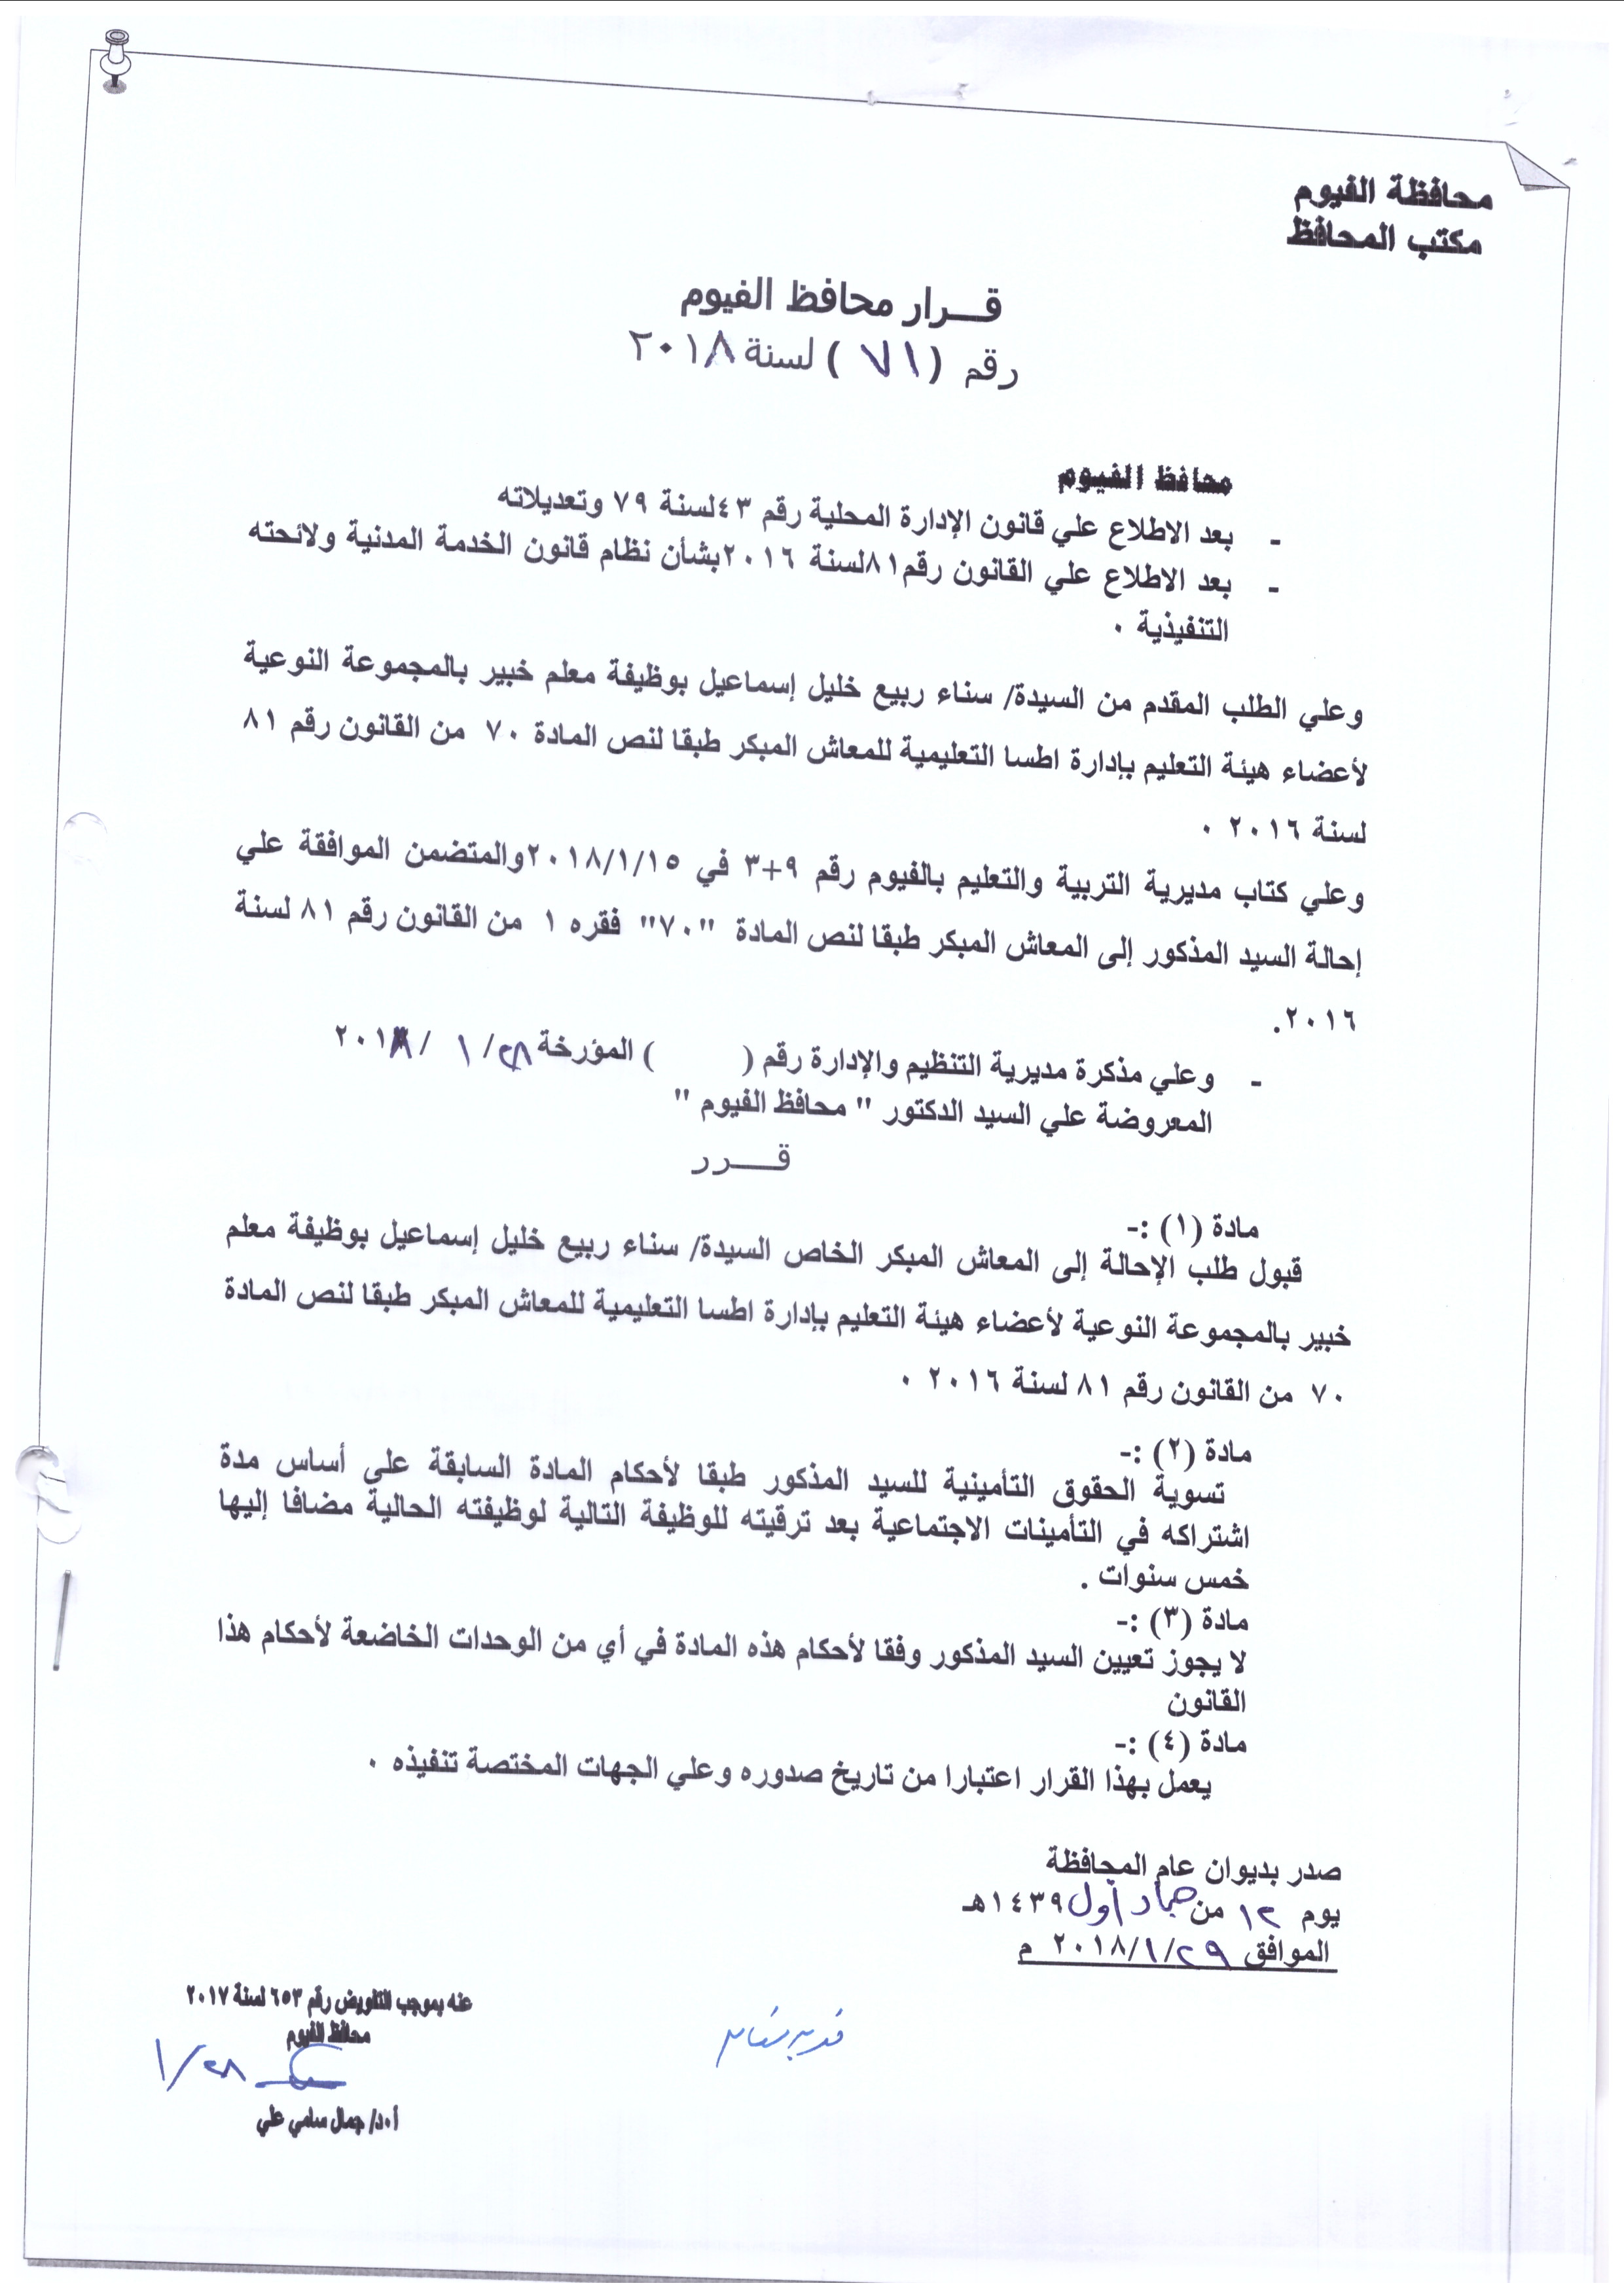 محافظة الفيوم
مكتب المحافظ
قـــرار محافظ الفيوم
رقم ( ٧١ ) لسنة ٢٠١٨
محافظ الفيوم
- بعد الاطلاع علي قانون الإدارة المحلية رقم ٤٣لسنة ٧٩ وتعديلاته
- بعد الاطلاع علي القانون رقم٨١لسنة ٢٠١٦بشأن نظام قانون الخدمة المدنية ولائحته
التنفيذية ٠
وعلي الطلب المقدم من السيدة/ سناء ربيع خليل إسماعيل بوظيفة معلم خبير بالمجموعة النوعية
لأعضاء هيئة التعليم بإدارة اطسا التعليمية للمعاش المبكر طبقا لنص المادة ٧٠ من القانون رقم ٨١
لسنة ٢٠١٦ ٠
وعلي كتاب مديرية التربية والتعليم بالفيوم رقم ٩+٣ في ٢٠١٨/١/١٥والمتضمن الموافقة علي
إحالة السيد المذكور إلى المعاش المبكر طبقا لنص المادة "٧٠" فقره ١ من القانون رقم ٨١ لسنة
٢٠١٦.
- وعلي مذكرة مديرية التنظيم والإدارة رقم ( ) المؤرخة ٢٨/ ١ / ٢٠١٨
المعروضة علي السيد الدكتور " محافظ الفيوم "
قــــرر
مادة (١) :-
قبول طلب الإحالة إلى المعاش المبكر الخاص السيدة/ سناء ربيع خليل إسماعيل بوظيفة معلم
خبير بالمجموعة النوعية لأعضاء هيئة التعليم بإدارة اطسا التعليمية للمعاش المبكر طبقا لنص المادة
٧٠ من القانون رقم ٨١ لسنة ٢٠١٦ ٠
مادة (٢) :-
تسوية الحقوق التأمينية للسيد المذكور طبقا لأحكام المادة السابقة على أساس مدة
اشتراكه في التأمينات الاجتماعية بعد ترقيته للوظيفة التالية لوظيفته الحالية مضافا إليها
خمس سنوات .
مادة (٣) :-
لا يجوز تعيين السيد المذكور وفقا لأحكام هذه المادة في أي من الوحدات الخاضعة لأحكام هذا
القانون
مادة (٤) :-
يعمل بهذا القرار اعتبارا من تاريخ صدوره وعلي الجهات المختصة تنفيذه ٠
صدر بديوان عام المحافظة
يوم ١٢ من جماد أول ١٤٣٩هـ
الموافق ٢٠١٨/١/٢٩ م
عنه بموجب التفويض رقم ٦٥٣ لسنة ٢٠١٧
محافظ الفيوم
١/٢٨
أ٠د/ جمال سامي علي